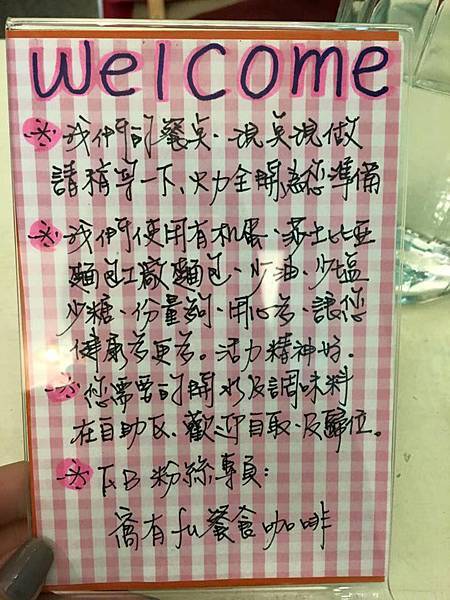 welcome
※ 我們的餐点、現点現做
請稍等一下、火力全開為您準備
※ 我們使用有机蛋、莎士比亞
麵包工廠麵包、少油、少塩
少糖、份量夠、用心多、讓您
健康多更多。活力精神好。
※ 您需要的開水及調味料
在自助區、歡迎自取、及歸位。
※ F.B 粉絲專頁:
窩有fu餐食咖啡